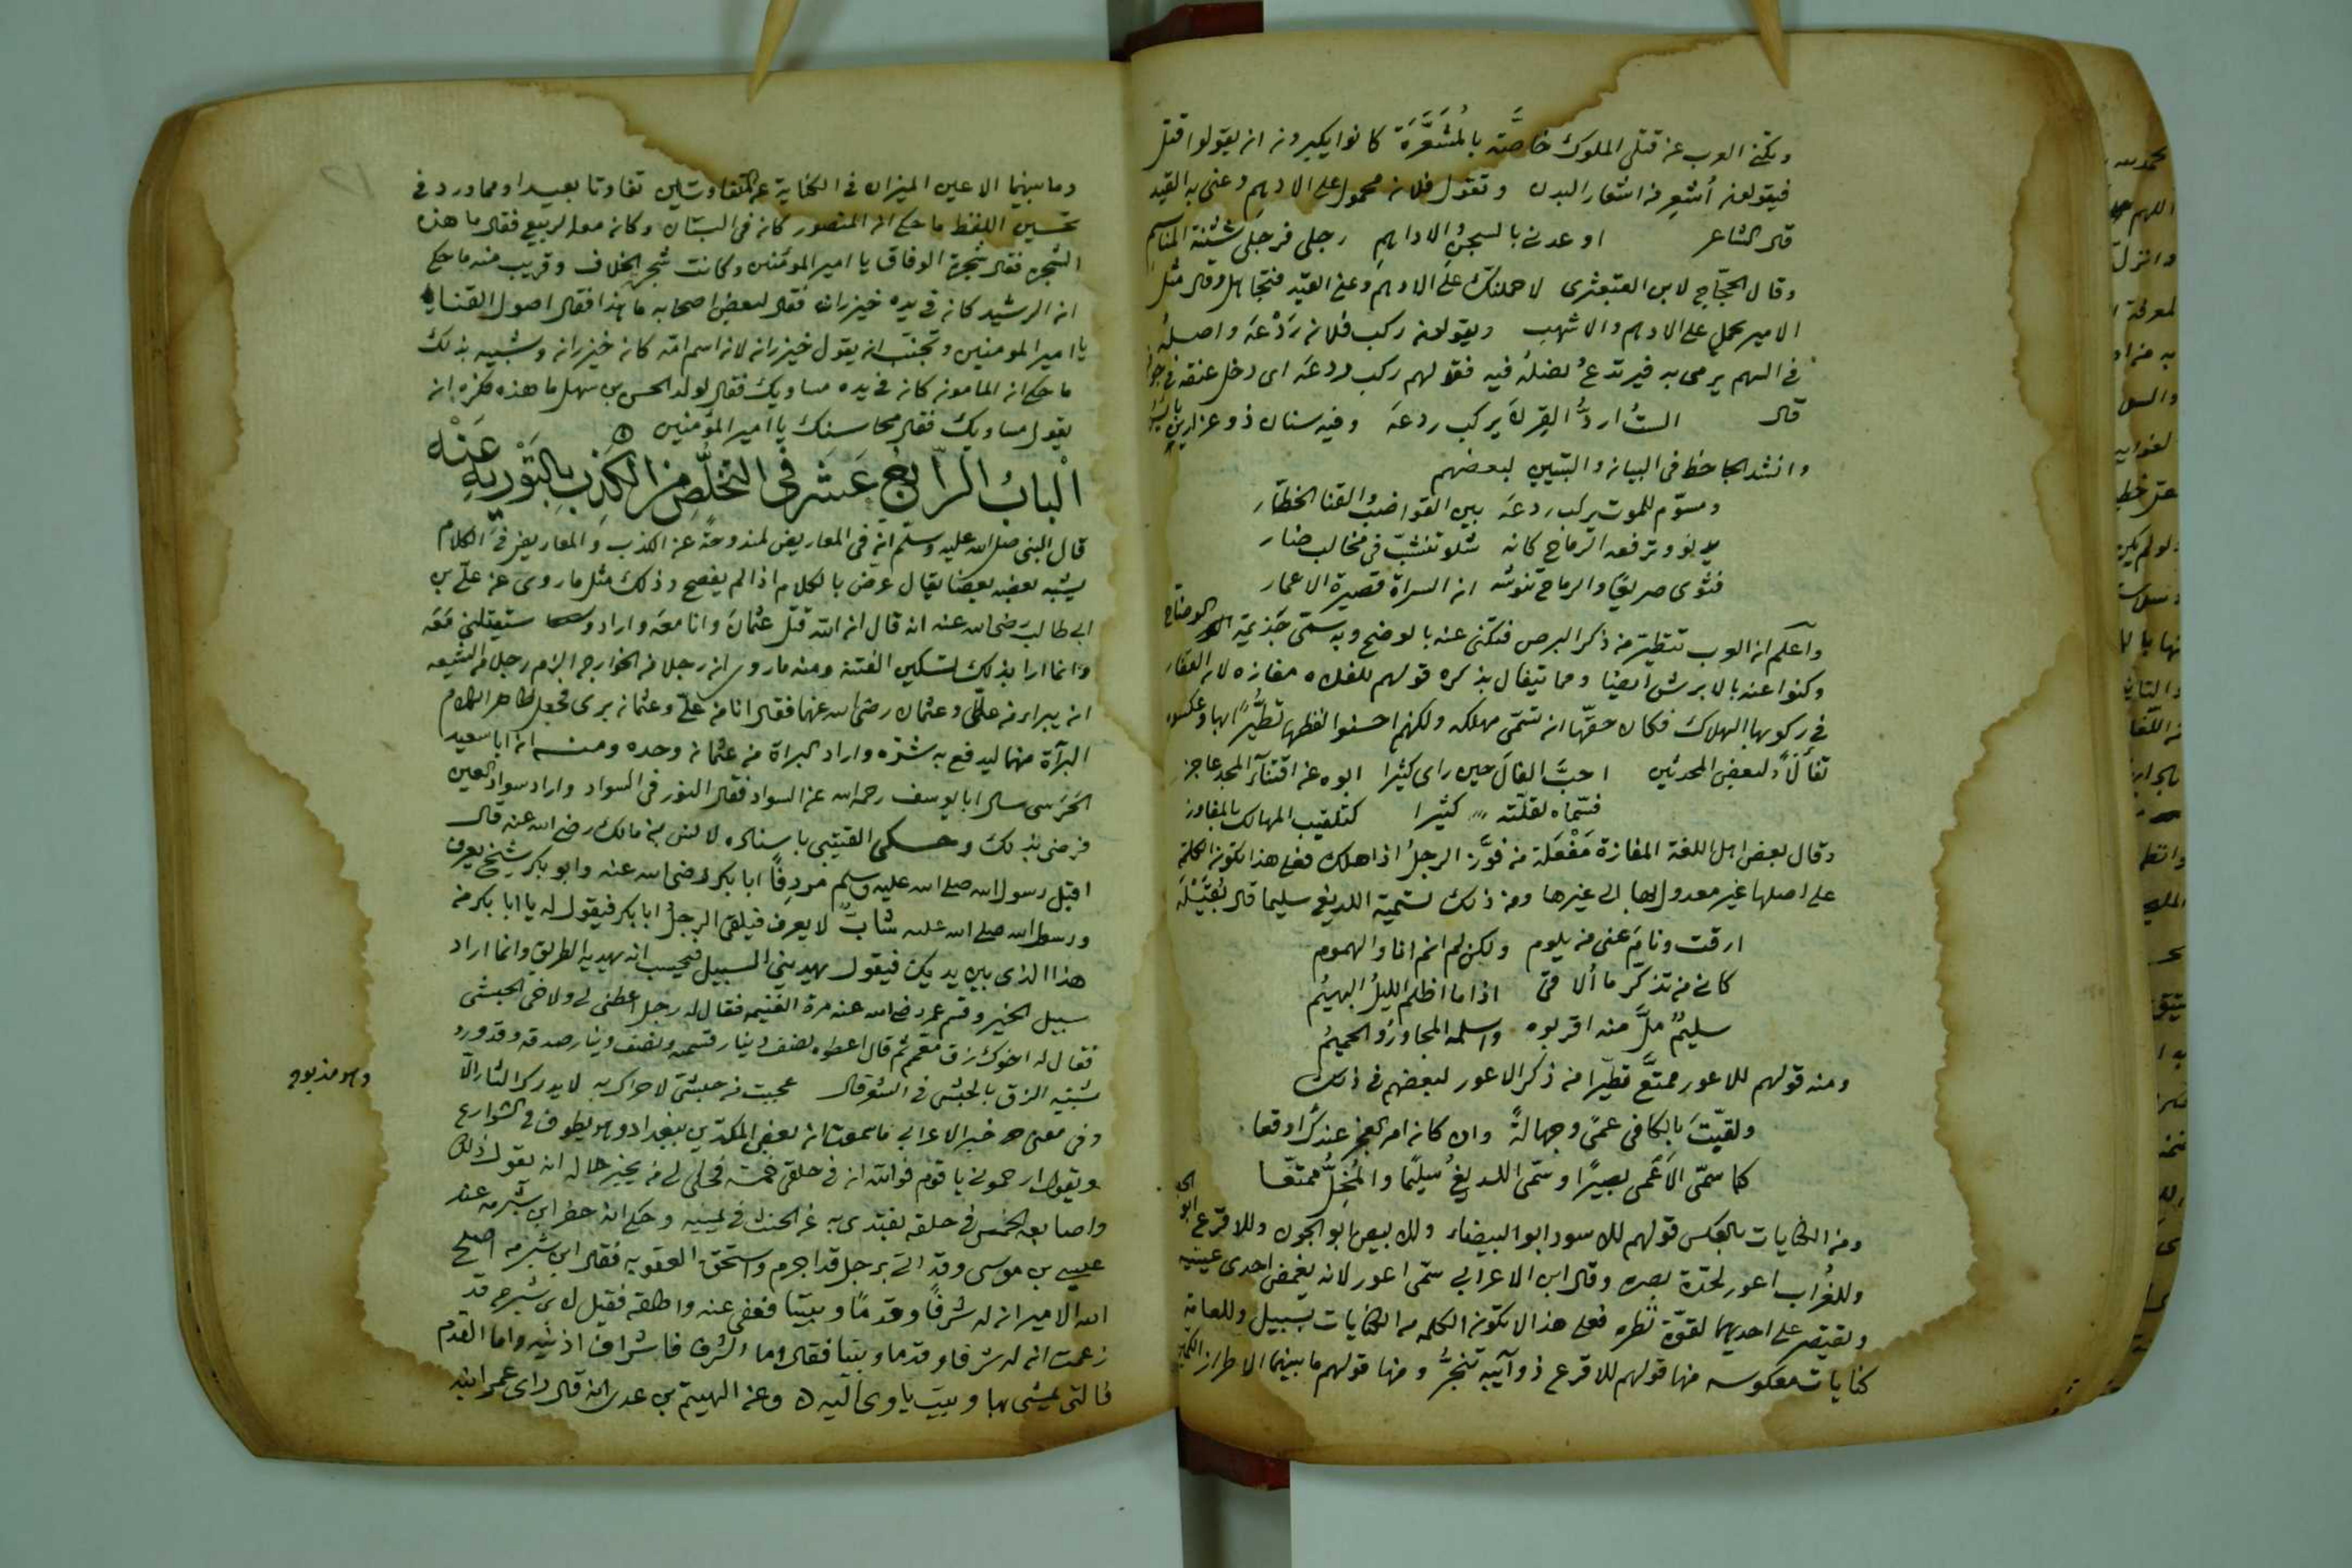 ويكنى العرب عن قتلى الملوك خاصّة بالمُشَعَّرَة كانوا يكبرون ان يقولوا قتل
فيقولون أُشعِر من اشعار البدن وتقول فلان محمول على الادهم وعنى به القيد
قال الشاعر اوعدنى بالسجن والاداهم رجلى فرجلى شثنة المناسم
وقال الحجّاج لابن القبعثرى لاحملنّك على الادهم وعنى القيد فتجاهل وقال مثل
الامير يحمل على الادهم والاشهب ويقولون ركب فلان رَدْعَه واصله
فى السهم يرمى به فيرتدع نصله فيه فقولهم ركب ردعه اى دخل عنقه فى جوفه
قال الستُ اردُّ القِرن يركب ردعَه وفيه سنان ذو غرارين
وانشد الجاحظ فى البيان والتبيين لبعضهم
ومسوّم للموت يركب ردعَه بين القواضب والقنا الخطّار
يدنو وترفعه الرماح كانه شلو تنشّب فى مخالب ضار
فثوى صريعًا والرماح تنوشه ان السراة قصيرة الاعمار
واعلم ان العرب تتطيّر من ذكر البرص فتكنى عنه بالوضح وبه سمّى جَذيمة الوضّاح
وكنوا عنه بالابرش ايضا ومما يتفال بذكره قولهم للفلاه مفازه لان القفار
فى ركوبها الهلاك فكان حقّها ان تسمّى مهلكه ولكنهم احسنوا لفظها تطيُّرًا بها وعكسوه
تفاءلًا ولبعض المحدثين احبَّ الفالَ حين راى كثيرا ابوه عن اقتناء المجد عاجز
فسمّاه لقلّته كثيرا كتلقيب المهالك بالمفاوز
وقال بعض اهل اللغة المفازة مَفْعَلة من فوَّز الرجلُ اذا هلك فعلى هذا تكون الكلمة
على اصلها غير معدول بها الى غيرها ومن ذلك تسمية اللديغ سليما قال
ارقت ونامَ عنى من يلوم ولكن لم انم انا والهموم
كانى من تذكّر ما ألاقى اذا ما اظلم الليلُ البهيمُ
سليمٌ ملَّ منه اقربوه واسلمه المجاورُ والحميمُ
ومنه قولهم للاعور ممتَّع تطيّرا من ذكر الاعور لبعضهم فى ذلك
ولقيّتَ بالكافى عمًى وجهالةً وان كان امر العجز عندك اوقعا
كما سمّى الاَعْمى بصيرًا وسمّى اللديغُ سليمًا والمُخِلُّ ممتّعا
ومن الكنايات بالعكس قولهم للاسود ابو البيضاء وللابيض ابو الجون وللاقرع ابو
وللغُراب اعور لحدّة بصره وقال ابن الاعرابى سمّى اعور لانه يغمض احدى عينيه
ويقتصر على احديهما لقوّة نظره فعلى هذا لا تكون الكلمه من الكنايات بسبيل وللعامة
كنايات معكوسه منها قولهم للاقرع ذوآيبه تنجرُّ ومنها قولهم ما بينهما الا طراز الكمّين
وما بينهما الا عين الميزان فى الكناية عن المتفاوتين تفاوتا بعيدا ومما ورد فى
تحسين اللفظ ما حكى ان المنصور كان فى البستان وكان معه الربيع فقال ما هذه
الشجره فقال شجرة الوفاق يا امير المومنين وكانت شجر الخلاف وقريب منه ما حكى
ان الرشيد كان فى يده خيزران فقال لبعض اصحابه ما هذا فقال اصول القنا
يا امير المومنين وتجنّب ان يقول خيزران لان اسم امّه كان خيزران وشبيه بذلك
ما حكى ان المامون كان فى يده مساويك فقال لولد الحسن بن سهل ما هذه فكره ان
يقول مساويك فقال محاسنك يا امير المؤمنين
الْبابُ الرّابع عَشر فى التخلُّص من الكَذِب بالتَّوْرِيةِ عَنْه
قال النبى صلى الله عليه وسلم ان فى المعاريض لمندوحةً عن الكذب والمعاريض فى الكلام
يشبه بعضه بعضا يقال عرض بالكلام اذا لم يفصح وذلك مثل ما روى عن علىّ بن
ابى طالب رضى الله عنه انه قال ان الله قتل عثمانَ وانا معَه واراد سيقتلنى مَعَه
وانما اراد بذلك تسكين الفتنة ومنه ما روى ان رجلا من الخوارج الزم رجلا من الشيعه
ان يبرا من علىّ وعثمان رضى الله عنهما فقال انا من علىّ وعثمانَ برى فجعل ظاهر الكلام
البرآة منهما ليدفع به شرّه واراد البراة من عثمان وحده ومنه ان ابا سعيد
الحَرَسى سال ابا يوسف رحمه الله عن السواد فقال النور فى السواد واراد سواد العين
فرضى بذلك وحكى القتيبى باسناده لانس بن مالك رضى الله عنه قال
اقبل رسول الله صلى الله عليه وسلم مردِفًا ابا بكر رضى الله عنه وابو بكر شيخ يعرف
ورسول الله صلى الله عليه شابٌّ لا يعرف فيلقى الرجلُ ابا بكر فيقول له يا ابا بكر من
هذا الذى بين يديك فيقول يهدينى السبيل فيحسب انه يهديه الطريق وانما اراد
سبيل الخير وقسم عمر رضى الله عنه مرة الغنيمه فقال له رجل اعطنى لى ولاخى الحبشى
فقال له اخوك زق ثم قال اعطوه نصف دينار قسمه ونصف دينار صدقه وقد ورد
شبيه الزق بالحبشى فى الشعر قال عجبت من حبشىّ لا حراك به لا يدرك الثار الّا
وهو مذبوح
وفى معنى خبر الاعرابى ما سمعت ان بعض المكدّين ببغداد وهو يطوف فى الشوارع
ويقول ارحمونى يا قوم فوالله ان فى حلقى خمسه فحكى لى من يخبر حاله ان يقول ذلك
واصابعه الخمس فى حلقه وحكى انه حضر ابن شبرمه عند
عيسى بن موسى وقد اتى برجل قد اجرم واستحق العقوبه فقال ابن شبرمه اصلح
الله الامير ان له شرفًا وقدمًا وبيتا فعفى عنه واطلقه فقيل لابن شبرمه قد
زعمت ان له شرفا وقدما وبيتا فقال اما الشرف فاشراف اذنيه واما القدم
فالتى يمشى بها وبيت ياوى اليه وعن الهيثم بن عدى انه قال راى عمر ابنه